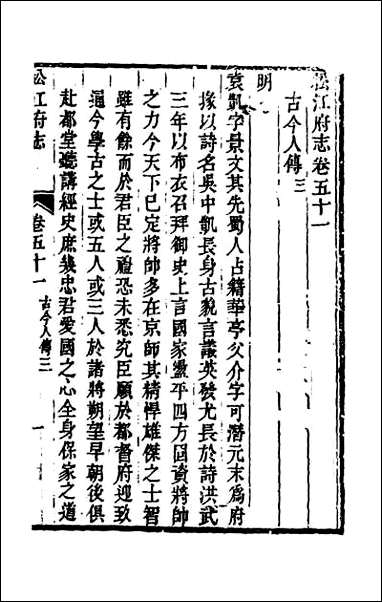 松江府志卷五十一
古今人傳三
明
袁凱字景文其先蜀人占籍華亭父介字可潛元末爲府
掾以詩名吳中凱長身古貌言議英發尤長於詩洪武
三年以布衣召拜御史上言國家盪平四方固資將帥
之力今天下已定將帥多在京師其精悍雄傑之士智
雖有餘而於君臣之禮恐未悉究臣願於都督府迎致
通今學古之士或五人或三人於諸將朔望早朝後俱
赴都堂聽講經史庶幾忠君愛國之心全身保家之道
松江府志
卷五十一
古今人傳三
一